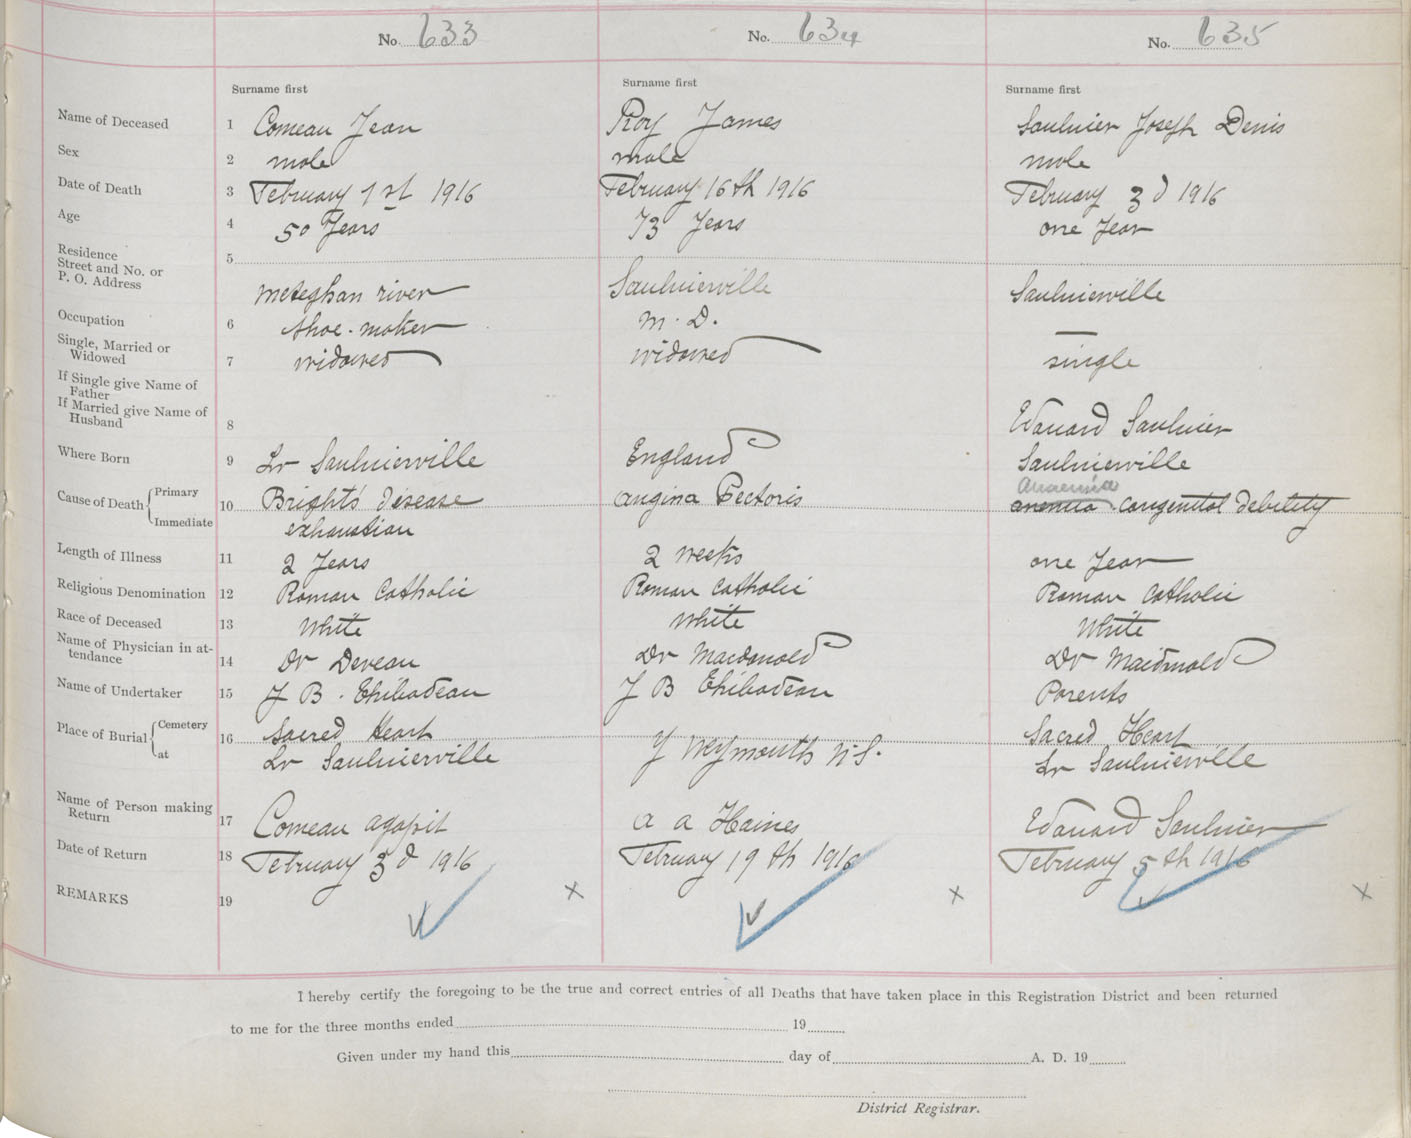 No. 633 No. 634 No. 635
Surname first Surname first Surname first
Name of Deceased 1 Comeau Jean Roy James Saulnier Joseph Denis
Sex 2 male male male
Date of Death 3 February 1st 1916 February 16th 1916 February 3d 1916
Age 4 50 Years 73 Years one Year
Residence
Street and No. or 5
P. O. Address Meteghan river Saulnierville Saulnierville
Occupation 6 Shoe-maker M. D. —
Single, Married or
Widowed 7 widowed widowed single
If Single give Name of
Father
If Married give Name of
Husband 8 Edouard Saulnier
Where Born 9 Lr Saulnierville England Saulnierville
Anaemia
Cause of Death { Primary 10 Bright's disease angina Pectoris anemia. congenital debility
Immediate exhaustion
Length of Illness 11 2 Years 2 weeks one Year
Religious Denomination 12 Roman Catholic Roman Catholic Roman Catholic
Race of Deceased 13 White White White
Name of Physician in at-
tendance 14 Dr Deveau Dr Macdonald Dr Macdonald
Name of Undertaker 15 J B. Thibodeau J B Thibodeau Parents
Place of Burial { Cemetery 16 Sacred Heart Sacred Heart
at Lr Saulnierville Weymouth N.S. Lr Saulnierville
Name of Person making
Return 17 Comeau agapit A A Haines Edouard Saulnier
Date of Return 18 February 3d 1916 February 19th 1916 February 5th 1916
REMARKS 19 x x x
I hereby certify the foregoing to be the true and correct entries of all Deaths that have taken place in this Registration District and been returned
to me for the three months ended 19
Given under my hand this day of A. D. 19
District Registrar.